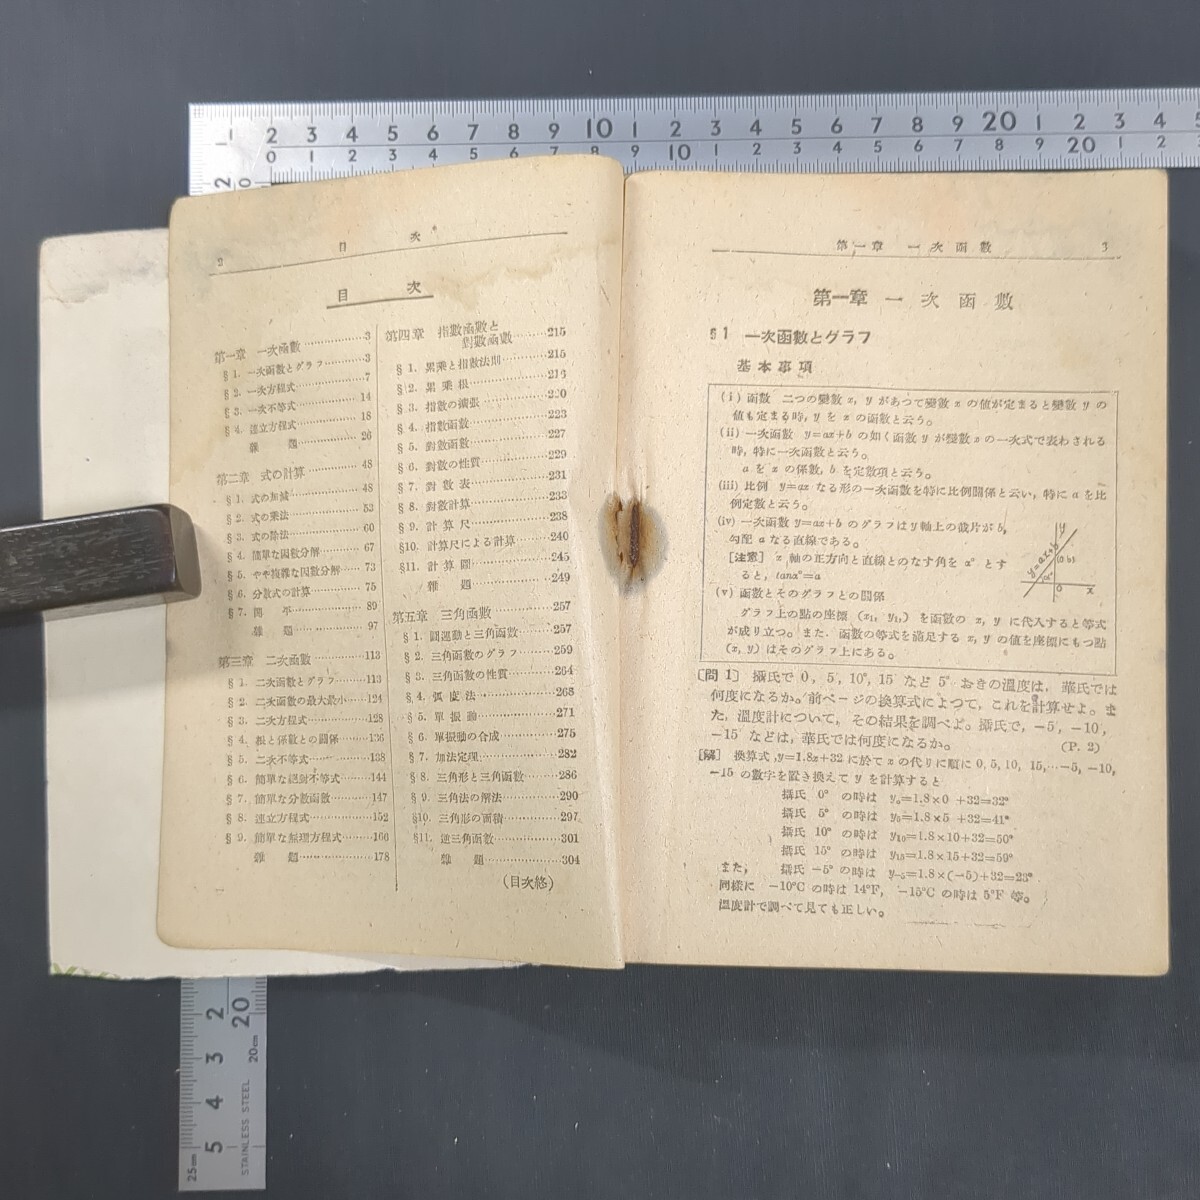 2 目次
目次
第一章 一次函數……………3
§1. 一次函數とグラフ……………3
§2. 一次方程式……………7
§3. 一次不等式……………14
§4. 連立方程式……………18
雜題……………26
第二章 式の計算……………48
§1. 式の加減……………48
§2. 式の乘法……………53
§3. 式の除法……………60
§4. 簡單な因數分解……………67
§5. やや複雜な因數分解……………73
§6. 分數式の計算……………75
§7. 開平……………89
雜題……………97
第三章 二次函數……………113
§1. 二次函數とグラフ……………113
§2. 二次函數の最大最小……………124
§3. 二次方程式……………128
§4. 根と係數との關係……………136
§5. 二次不等式……………138
§6. 簡單な絕對不等式……………144
§7. 簡單な分數函數……………147
§8. 連立方程式……………152
§9. 簡單な無理方程式……………166
雜題……………178
第四章 指數函數と
對數函數……………215
§1. 累乘と指數法則……………215
§2. 累乘根……………216
§3. 指數の擴張……………220
§4. 指數函數……………223
§5. 對數函數……………227
§6. 對數の性質……………229
§7. 對數表……………231
§8. 對數計算……………233
§9. 計算尺……………238
§10. 計算尺による計算……………240
§11. 計算圖……………245
雜題……………249
第五章 三角函數……………257
§1. 圓運動と三角函數……………257
§2. 三角函數のグラフ……………259
§3. 三角函數の性質……………264
§4. 弧度法……………268
§5. 單振動……………271
§6. 單振動の合成……………275
§7. 加法定理……………282
§8. 三角形と三角函數……………286
§9. 三角法の解法……………290
§10. 三角形の面積……………297
§11. 逆三角函數……………301
雜題……………304
(目次終)
第一章 一次函數 3
第一章 一次函數
§1 一次函數とグラフ
基本事項
(i) 函數 二つの變數 x, y があつて變數 x の値が定まると變數 y の
値も定まる時, y を x の函數と云う。
(ii) 一次函數 y=ax+b の如く函數 y が變數 x の一次式で表わされる
時, 特に一次函數と云う。
a を x の係數, b を定數項と云う。
(iii) 比例 y=ax なる形の一次函數を特に比例關係と云い, 特に a を比
例定數と云う。
(iv) 一次函數 y=ax+b のグラフは y 軸上の截片が b,
勾配 a なる直線である。
[注意] x 軸の正方向と直線とのなす角を α° とす
ると, tanα°=a
y
y=ax+b
α°
O x
(v) 函數とそのグラフとの關係
グラフ上の點の座標 (x₁, y₁,) を函數の x, y に代入すると等式
が成り立つ。また 函數の等式を滿足する x, y の値を座標にもつ點
(x, y) はそのグラフ上にある。
[問 1] 攝氏で 0, 5, 10°, 15 など 5° おきの溫度は, 華氏では
何度になるか。前ページの換算式によつて, これを計算せよ。ま
た, 溫度計について, その結果を調べよ。攝氏で, −5°, −10°,
−15° などは, 華氏では何度になるか。 (P. 2)
[解] 換算式, y=1.8x+32 に於て x の代りに順に 0, 5, 10, 15, …−5, −10,
−15 の數字を置き換えて y を計算すると
攝氏 0° の時は y₀=1.8×0 +32=32°
攝氏 5° の時は y₅=1.8×5 +32=41°
攝氏 10° の時は y₁₀=1.8×10+32=50°
攝氏 15° の時は y₁₅=1.8×15+32=59°
また, 攝氏 −5° の時は y₋₅=1.8×(−5)+32=23°
同樣に −10°C の時は 14°F, −15°C の時は 5°F 等。
溫度計で調べて見ても正しい。
1 2 3 4 5 6 7 8 9 10 1 2 3 4 5 6 7 8 9 20 1 2 3 4 5
0 1 2 3 4 5 6 7 8 9 10 1 2 3 4 5 6 7 8 9 20 1 2
2 3 4 5
20
20cm
25cm
STAINLESS STEEL